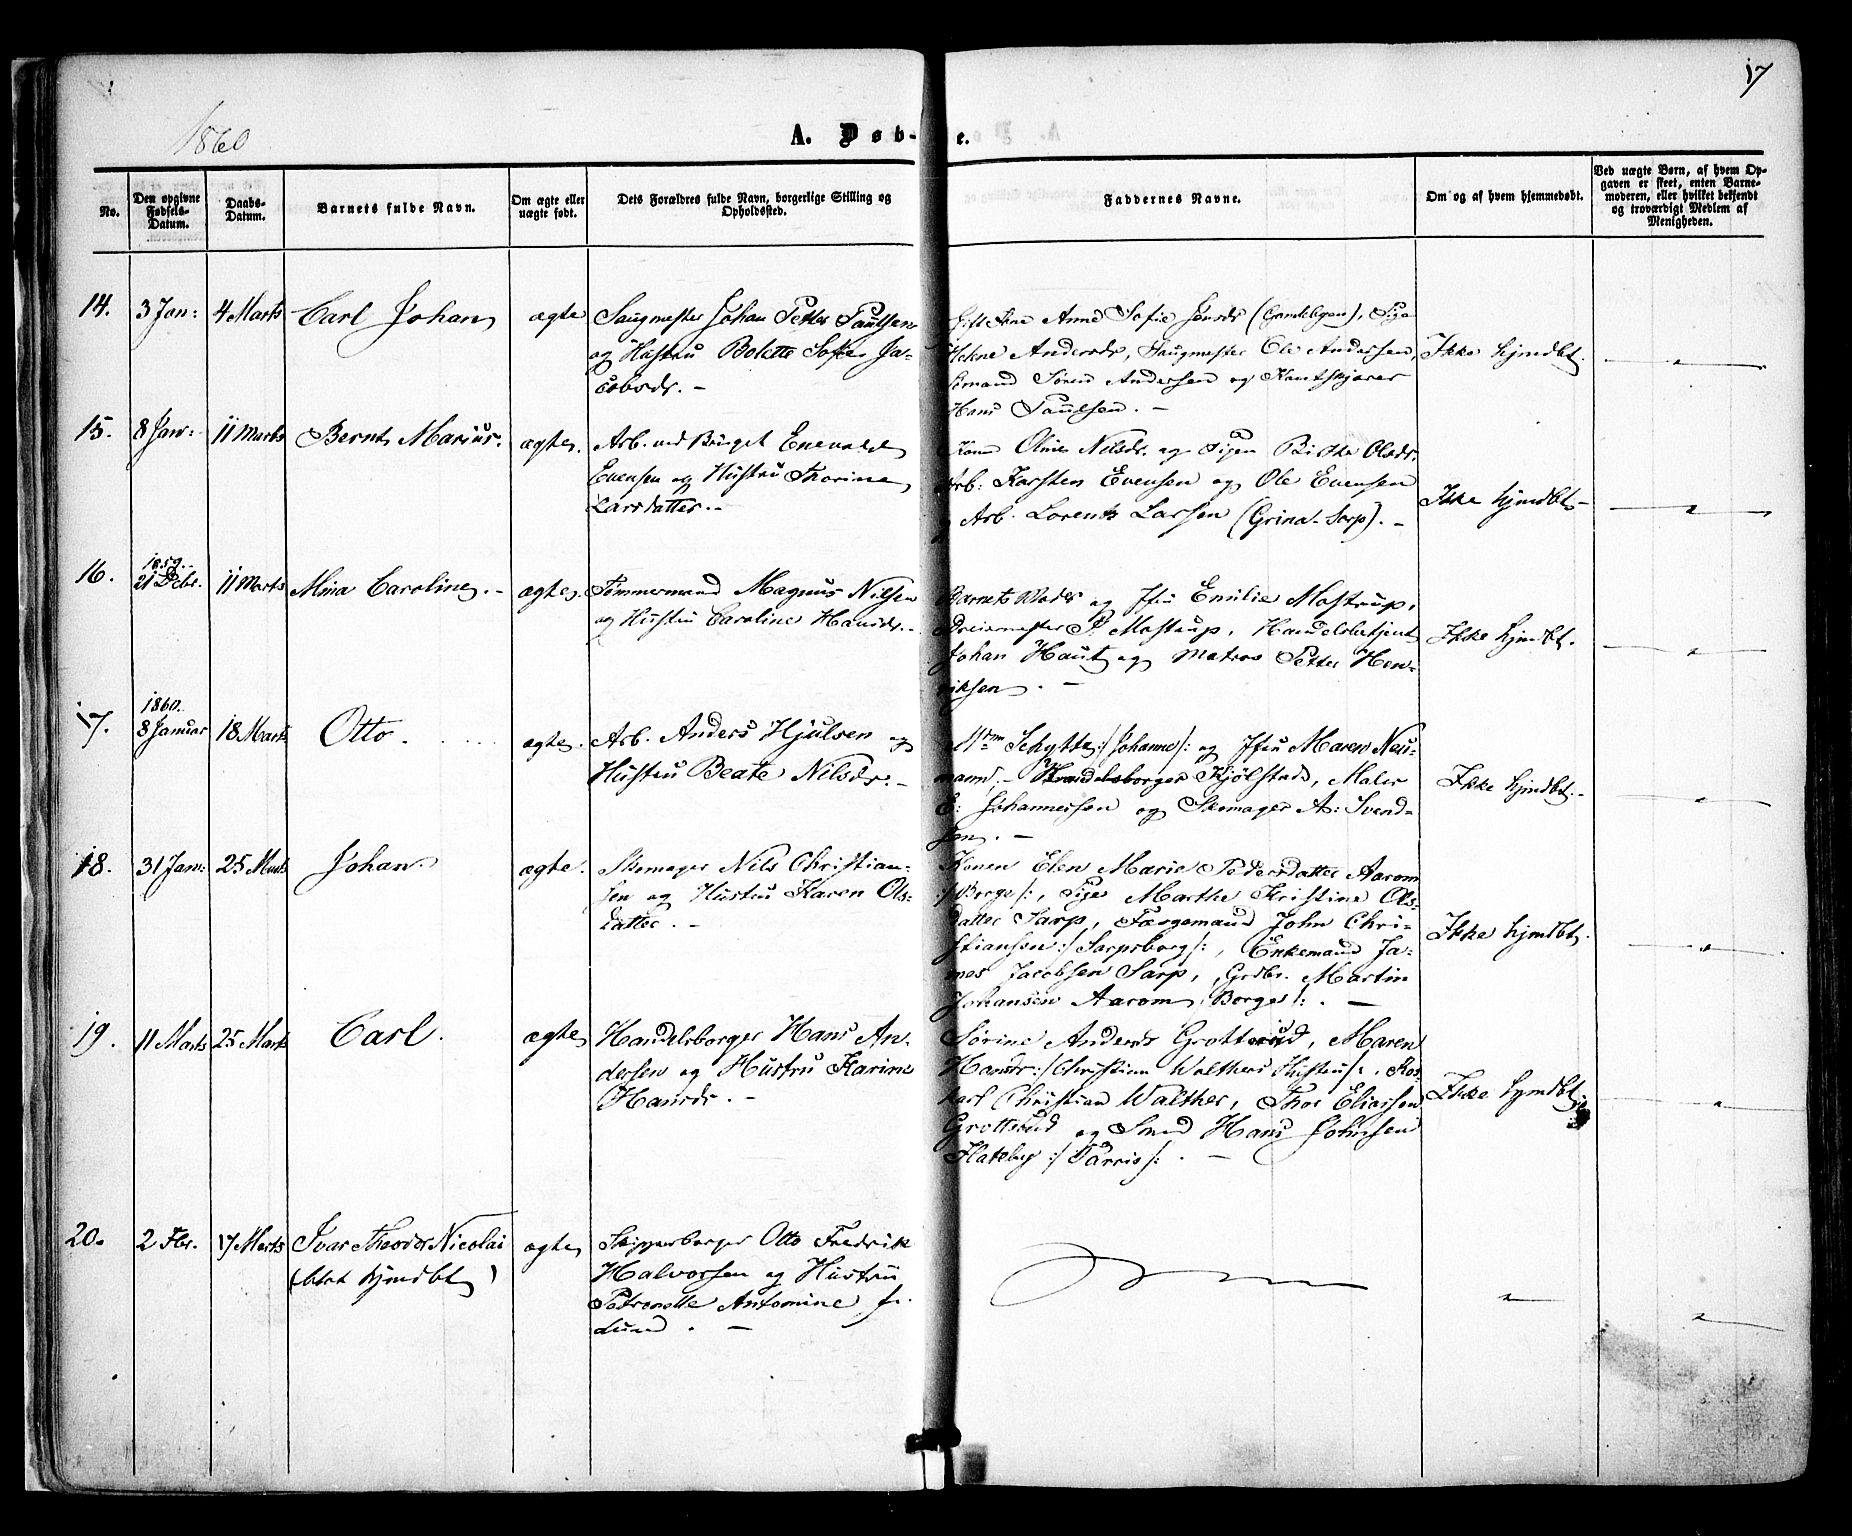 17
1860
A. Døb-
e.
No.
Den opgivne Fødsels-Datum.
Daabs-Datum.
Barnets fulde Navn.
Om ægte eller uægte født.
Dets Forældres fulde Navn, borgerlige Stilling og Opholdssted.
Faddernes Navne.
Om og af hvem hjemmedøbt.
Ved uægte Børn, af hvem Opgaven er skeet, enten Barnemoderen, eller hvilket bekjendt og troværdigt Medlem af Menigheden.
14. 3 Jan: 4 Marts Carl Johan ægte
Saugmester Johan Petter Paulsen
og Hustru Bolette Sofie Ja-
cobsdr. -
Gift Anne Sofie Jensdr (Gamlebyen), Pige
Helene Andersdr, Saugmester Ole Andersen,
Søren Andersen og
Hans Paulsen. -
Ikke hjmdbt.
15. 8 Jan: 11 Marts Bernt Marius. ægte.
Arb. ved Bruget Enevald
Evensen og Hustru Thorine
Larsdatter. -
Kone Oline Nilsdr. og Pigen Birthe Olsdr.
Arb: Karsten Evensen og Ole Evensen
Arb. Lorents Larsen (Grina-Sarp). -
Ikke hjmdbt -
16. 1859. 21 Debr. 11 Marts Mina Caroline. - ægte.
Tømmermand Magnus Nilsen
og Hustru Caroline Hansdr. -
Barnets Moder og Jfru Emilie Mostrup,
Dreiermester P. Mostrup, Handelsbetjent
Johan Haut og Matros Petter Hen-
riksen. -
Ikke hjmdbt.
17. 1860. 8 Januar 18 Marts Otto. ægte.
Arb. Anders Hjulsen og
Hustru Beate Nilsdr. -
Schytte :/Johanne/: og Jfru Maren Neu-
mann. - Handelsborger Kjølstad, Maler
E: Johannessen og Skomager A: Svend-
sen. -
Ikke hjmdbt. -
18. 31 Jan: 25 Marts Johan. ægte.
Skomager Nils Christian-
sen og Hustru Karen Ols-
datter. -
Konen Elen Marie Pedersdatter Aarom
:/Borge/:, Pige Marthe Kristine Ols-
datter Sarp, Færgemand John Chri-
stiansen :/Sarpsborg/:, Enkemand Ja-
Jacobsen Sarp, Grdbr. Martin
Johansen Aarom :/Borge/:. -
Ikke hjmdbt.
19. 11 Marts 25 Marts Carl. ægte
Handelsborger Hans An-
dersen og Hustru Karine
Hansdr. -
Sørine Andersdr Grotterud, Maren
Hansdr :/Christian Walthers Hustru/:,
Christian Walther, Thor Eliassen
Grotterud og Smed Hans Johnsen
Flateby :/Parris/:. -
Ikke hjmdbt.
20. 2 Fbr. 17 Marts Ivar Theodor Nicolai ægte
(blot hjmdbt)
Skipperborger Otto Fredrik
Halvorsen og Hustru
Petronelle Antomine
lund. -